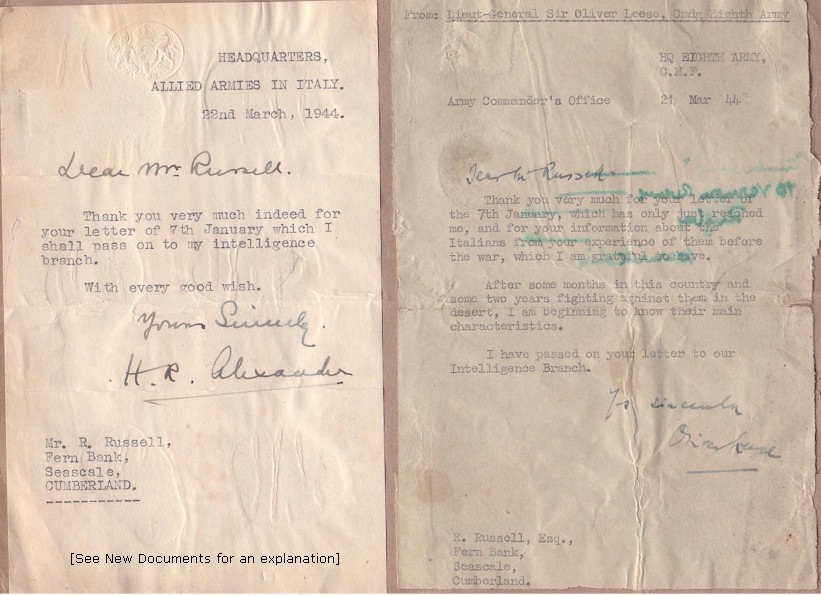 HEADQUARTERS,
ALLIED ARMIES IN ITALY.
22nd March, 1944.
Dear Mr. Russell.
Thank you very much indeed for
your letter of 7th January which I
shall pass on to my intelligence
branch.
With every good wish.
Yours Sincerely.
H. R. Alexander
Mr. R. Russell,
Fern Bank,
Seascale,
CUMBERLAND.
[See New Documents for an explanation]
From: Lieut-General Sir Oliver Leese, Cmdg Eighth Army
HQ EIGHTH ARMY,
C.M.F.
Army Commander's Office 21 Mar 44
Dear Mr Russell
Thank you very much for your letter of
the 7th January, which has only just reached
me, and for your information about the
Italians from your experience of them before
the war, which I am grateful to have.
After some months in this country and
some two years fighting against them in the
desert, I am beginning to know their main
characteristics.
I have passed on your letter to our
Intelligence Branch.
Yrs sincerely
Oliver Leese
R. Russell, Esq.,
Fern Bank,
Seascale,
Cumberland.